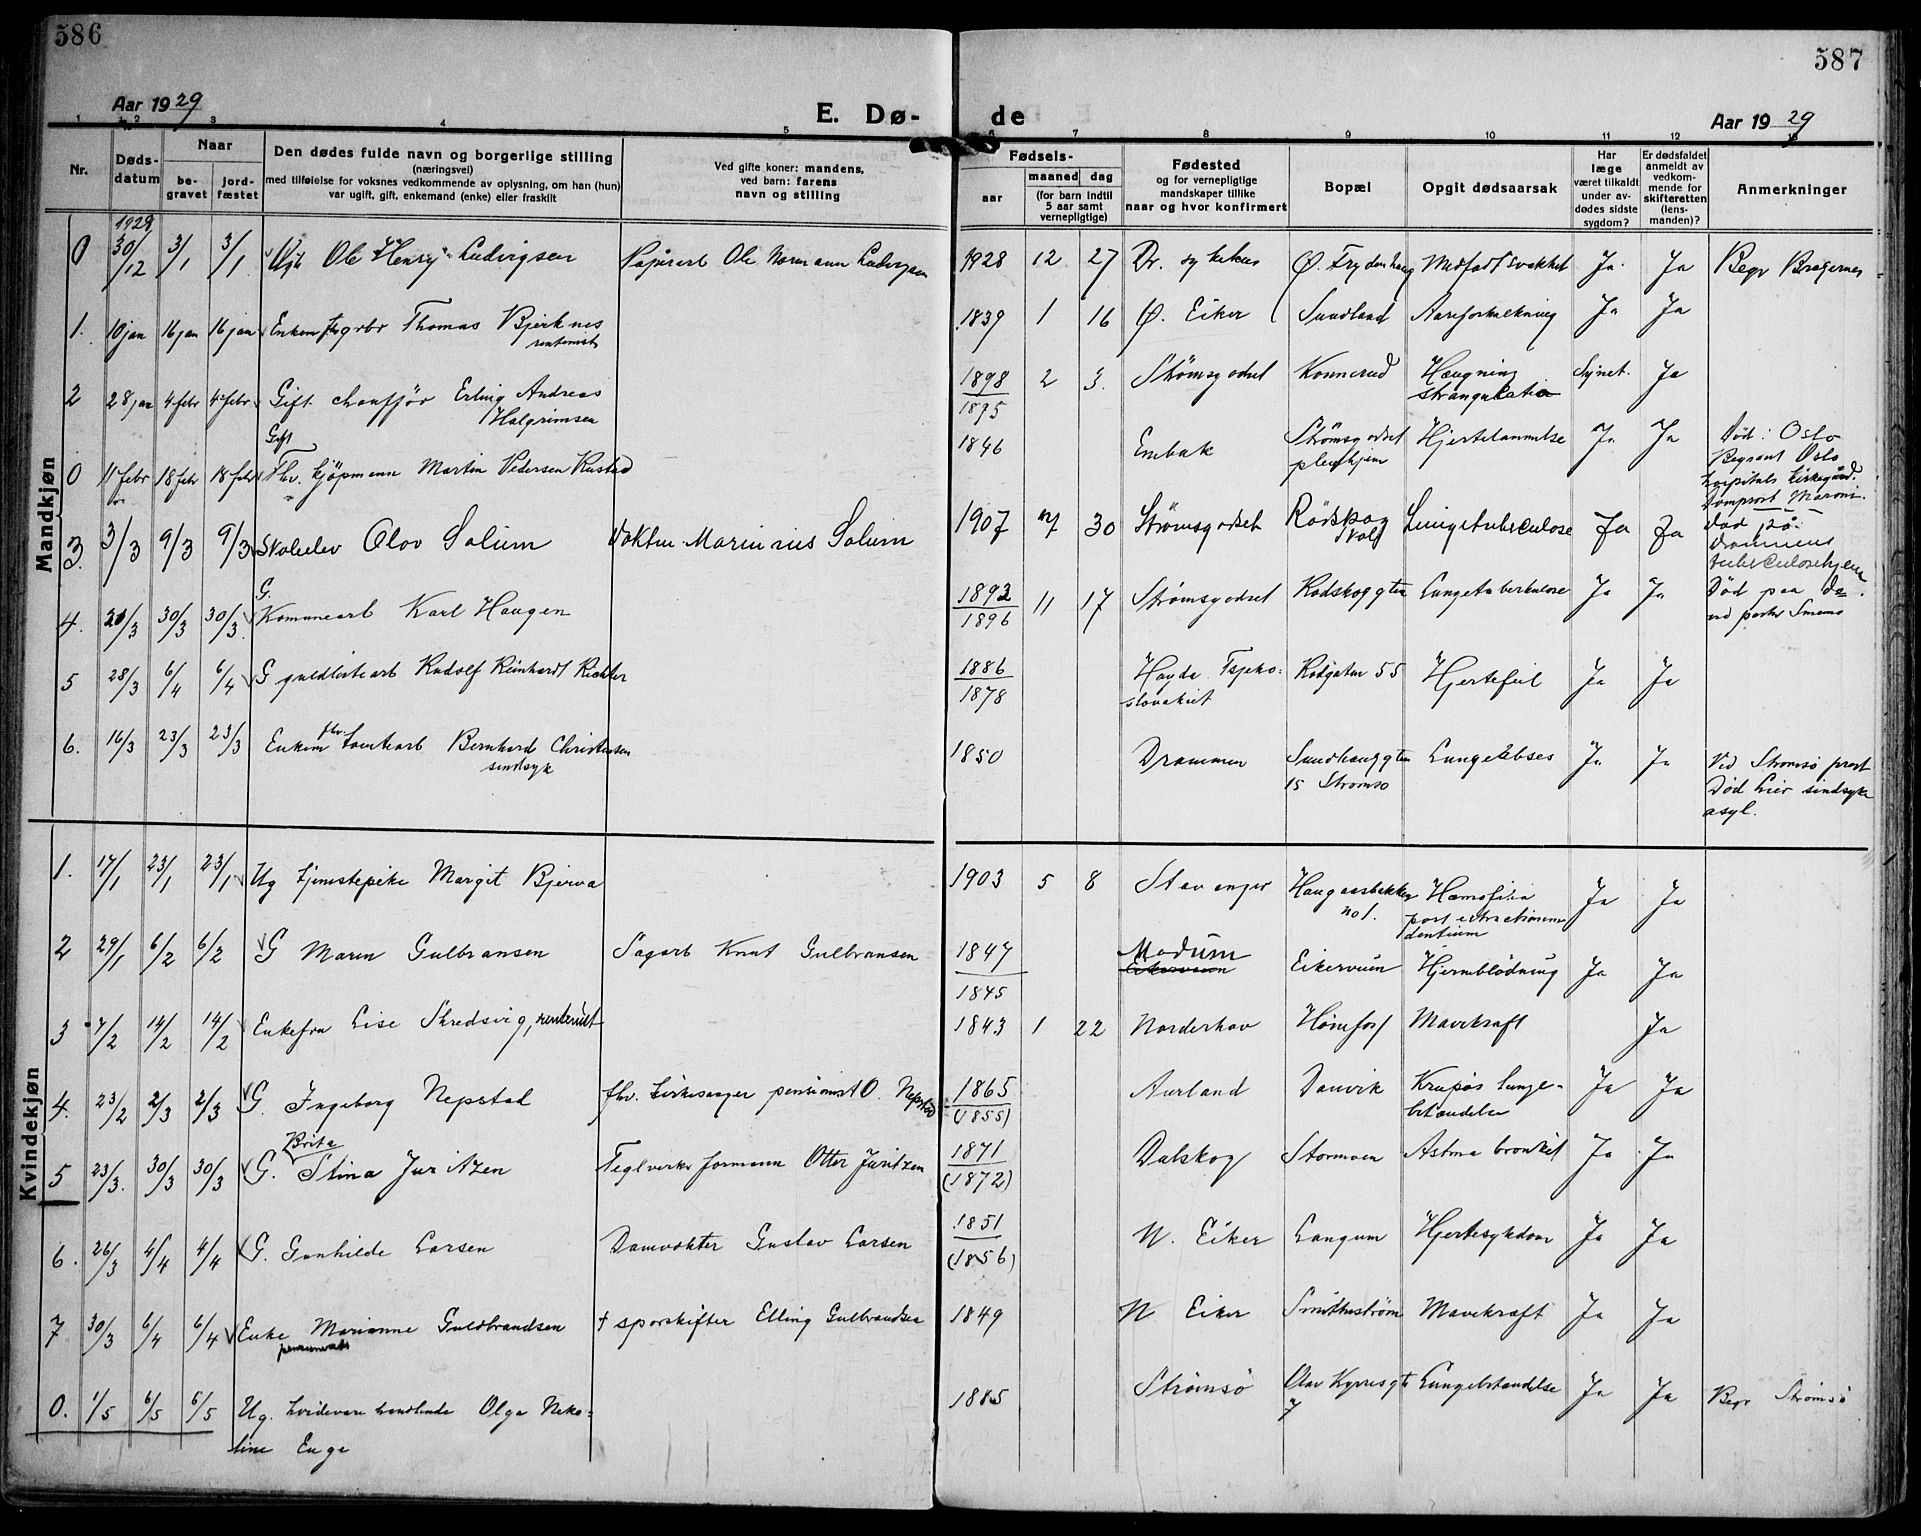 586
587
Aar 1929
E. Dø-
de
Aar 1929
1 2 3 4 5 6 7 8 9 10 11 12 13
Nr.
Døds-
datum
Naar
be-
gravet
jord-
fæstet
Den dødes fulde navn og borgerlige stilling
(næringsvei)
med tilføielse for voksnes vedkommende av oplysning, om han (hun)
var ugift, gift, enkemand (enke) eller fraskilt
Ved gifte koner: mandens,
ved barn: farens
navn og stilling
Fødsels-
aar
maaned dag
(for barn indtil
5 aar samt
vernepligtige)
Fødested
og for vernepligtige
mandskaper tillike
naar og hvor konfirmert
Bopæl
Opgit dødsaarsak
Har
læge
været tilkaldt
under av-
dødes sidste
sygdom?
Er dødsfaldet
anmeldt av
vedkom-
mende for
skifteretten
(lens-
manden)?
Anmerkninger
Mandkjøn
1928
0 30/12 3/1 3/1 Ole Henry Ludvigsen Papirarb Ole Normann Ludvigsen 1928 12 27 Dr. sykehus Ø. Frydenhaug Medfødt svakhet Ja Ja Begr Bragernes
1. 10 jan 16 jan 16 jan Enkem fhv grbr Thomas Bjerknes 1839 1 16 Ø. Eiker Sundland Aareforkalkning Ja Ja
rentenist
2 28 jan 4 febr 4 febr Gift chauffør Erling Andreas 1898 2 3. Strømsgodset Konnerud Hængning Synet. Ja
Halgrimsen 1895 strangulation
Gift
0 11 febr 18 febr 18 febr Fhv. kjøpmann Martin Pedersen Rustad 1846 Embak Strømsgodset Hjertelammelse Ja Ja Død i Oslo
pleiehjem Begravet Oslo
hospitals kirkegård.
Domprost Maroni.
3. 3/3 9/3 9/3 Skoleelev Olov Solum Vokter Marinius Solum 1907 7 30 Strømsgodset Rødskog Lungetuberkulose Ja Ja Død på
Drammens
tuberkulosehjem
G.
4. 20/3 30/3 30/3 Komunearb Karl Haugen 1892 11 17 Strømsgodset Rødskoggten Lungetuberkulose Ja Ja Død paa do.
1896
5 28/3 6/4 6/4 G guldlistearb Rudolf Reinhardt Richter 1886 Hayda Tsjeko- Rødgaten 55 Hjertefeil Ja Ja
1878 slovakiet
6. 16/3 23/3 23/3 Enkem fhv. tomtearb Bernhard Christensen 1850 Drammen Sundhauggten Lungeabses Ja Ja Ved Strømsø prest
sindsyk 15 Strømsø Død Lier sindsyke
asyl.
Kvindekjøn
1. 17/1 23/1 23/1 Ug tjenestepike Margit Bjerva 1903 5 8 Stavanger Haugaasbakken Hæmofilia Ja Ja
no 1. post extractionem
dentium
2 29/1 6/2 6/2 G Maren Gulbransen Sagarb Knut Gulbransen 1847 Modum Eikerveien Hjerneblødning Ja Ja
1845 Eikerveien
3 7/2 14/2 14/2 Enkefru Lise Skredsvig, rentenist 1843 1 22 Norderhov Hønefoss Mavekræft Ja
4. 23/2 2/3 2/3 G. Ingeborg Nepstad fhv. kirkesanger pensionist O. Nepstad 1865 Aurland Danvik Krupøs lunge- Ja Ja
(1855) betændelse
Brita
5 23/3. 30/3 30/3 G. Stina Juritzen Teglverksformann Otter Juritzen 1871 Dalskog Stormoen Astma bronkit Ja Ja
(1872)
6. 26/3 4/4 4/4 G. Gunhilde Larsen Damvokter Gustav Larsen 1851 N. Eiker Langum Hjertesykdom Ja Ja
(1856)
7 30/3 6/4 6/4 Enke Marianne Guldbrandsen + sporskifter Elling Gulbrandsen 1849 N Eiker Smithestrøm Mavekræft Ja Ja
0. 1/5 6/5 6/5 Ug. hvidevarehandlende Olga Neko- 1885 Strømsø Olav Kyrresgt Lungebetændelse Ja Ja Begr Strømsø
line Enge 7